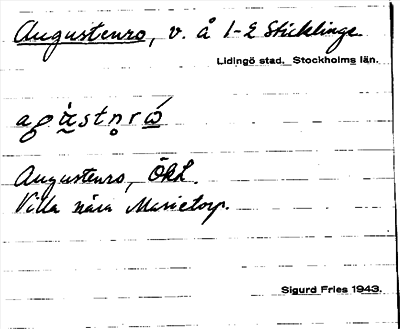 Augustenro, v. å 1-2 Sticklinge
Lidingö stad. Stockholms län.
Augustenro, Ökl.
Villa nära Marietorp.
Sigurd Fries 1943.